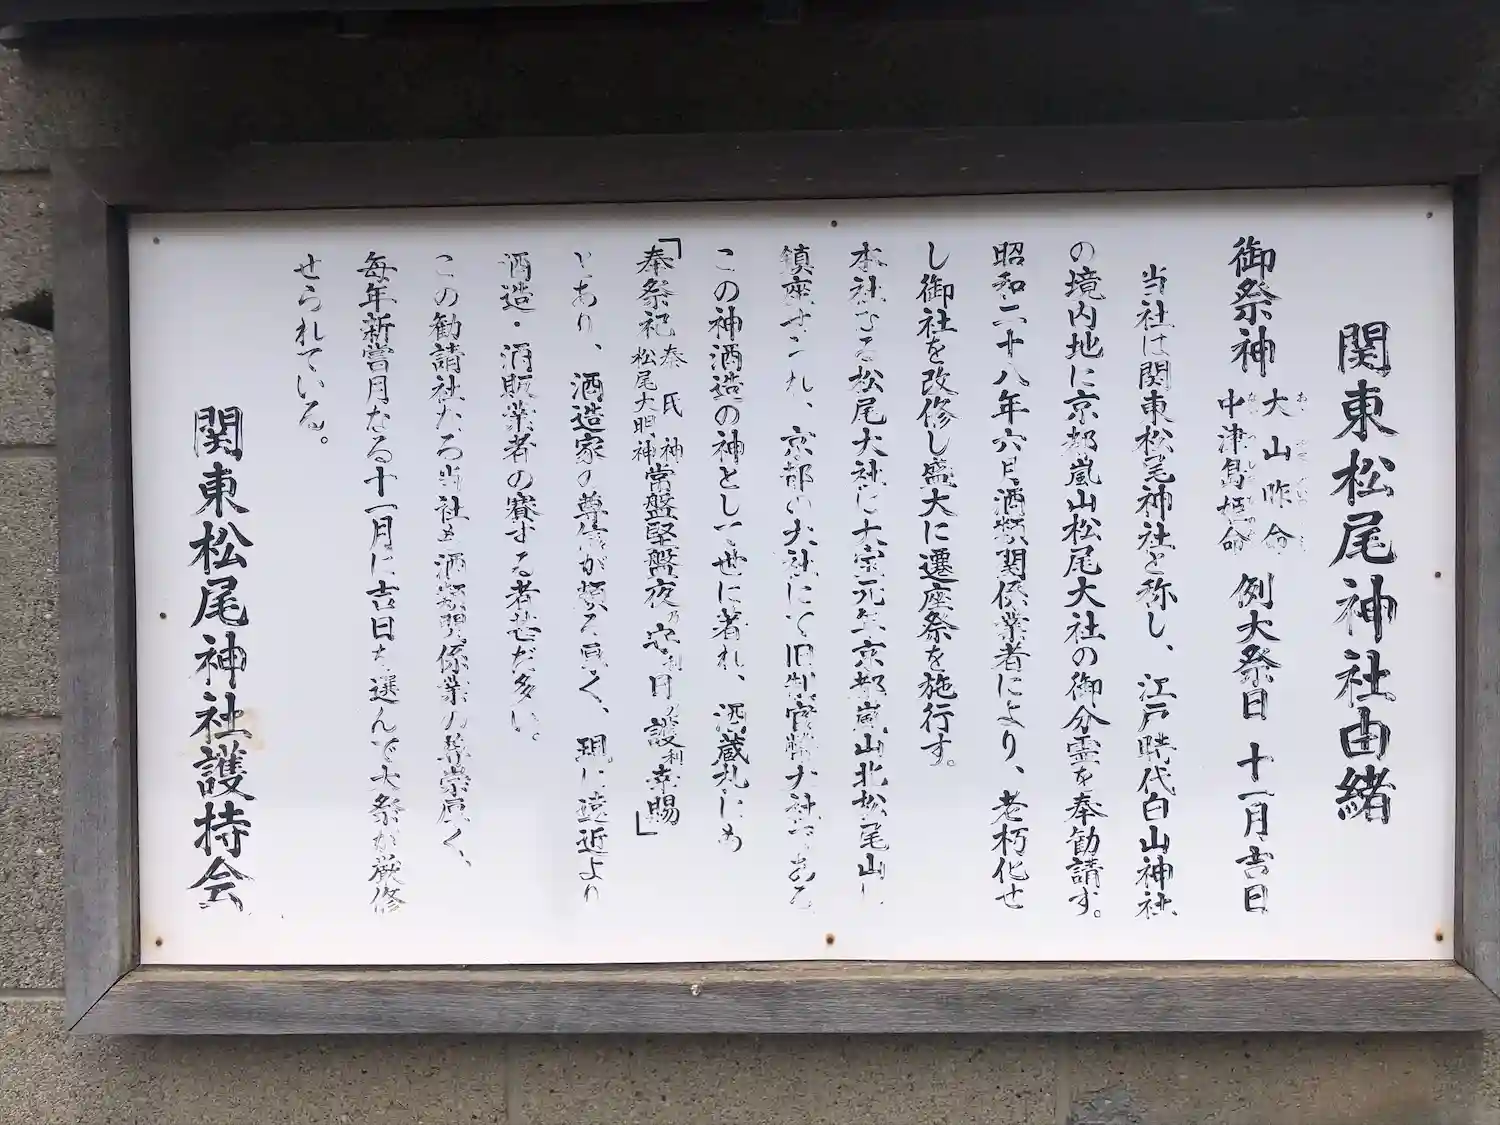 関東松尾神社由緒
御祭神 大山咋命 中津島姫命 例大祭日 十一月吉日
当社は関東松尾神社と称し、江戸時代白山神社
の境内地に京都嵐山松尾大社の御分霊を奉勧請す。
昭和二十八年六月酒類関係業者により、老朽化せ
し御社を改修し盛大に遷座祭を施行す。
本社なる松尾大社は大宝元年京都嵐山北松尾山に
鎮座せられ、京都の大社にて旧制官幣大社である
この神酒造の神として世に著れ、酒蔵札にも
「奉祭祀 秦氏神 松尾大明神 常盤堅盤夜乃守利日乃護利幸賜」
とあり、酒造家の尊信が頗る厚く、現に遠近より
酒造・酒販業者の賽する者甚だ多い。
この勧請社たる当社も酒類関係業の尊崇厚く、
毎年新嘗月なる十一月に吉日を選んで大祭が厳修
せられている。
関東松尾神社護持会